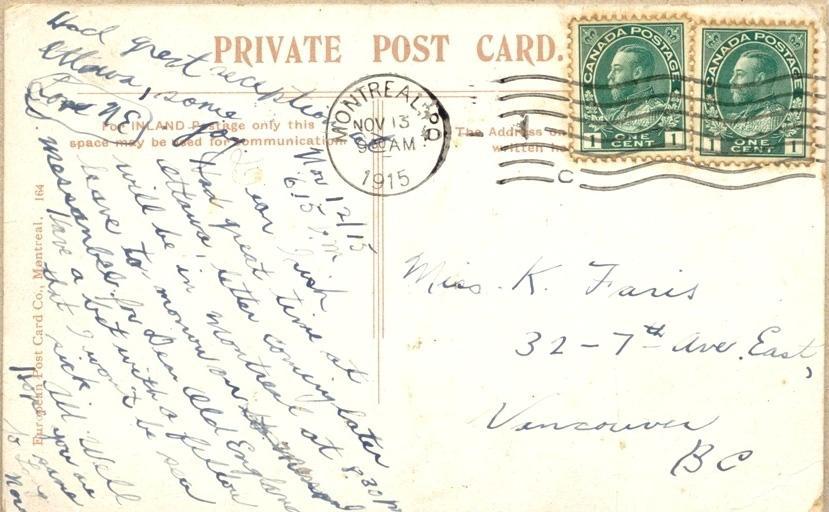 PRIVATE POST CARD.
For INLAND Postage only this space may be used for communication
The Address on
written he
MONTREAL, P.Q.
NOV 13
9 30 AM
1915
1
C
CANADA POSTAGE
1 ONE CENT 1
CANADA POSTAGE
1 ONE CENT 1
European Post Card Co., Montreal. 164
Nov 12/15
6.15 P.M
Had great reception at
Ottawa, some
Had great time at
Ottawa, letter coming later
will be in Montreal at 8.30 PM
leave to morrow on
for Dear Old England
Have a bet with a fellow
that I won't be sea
sick. Well
Miss. K. Faris
32-7th Ave. East,
Vancouver
BC